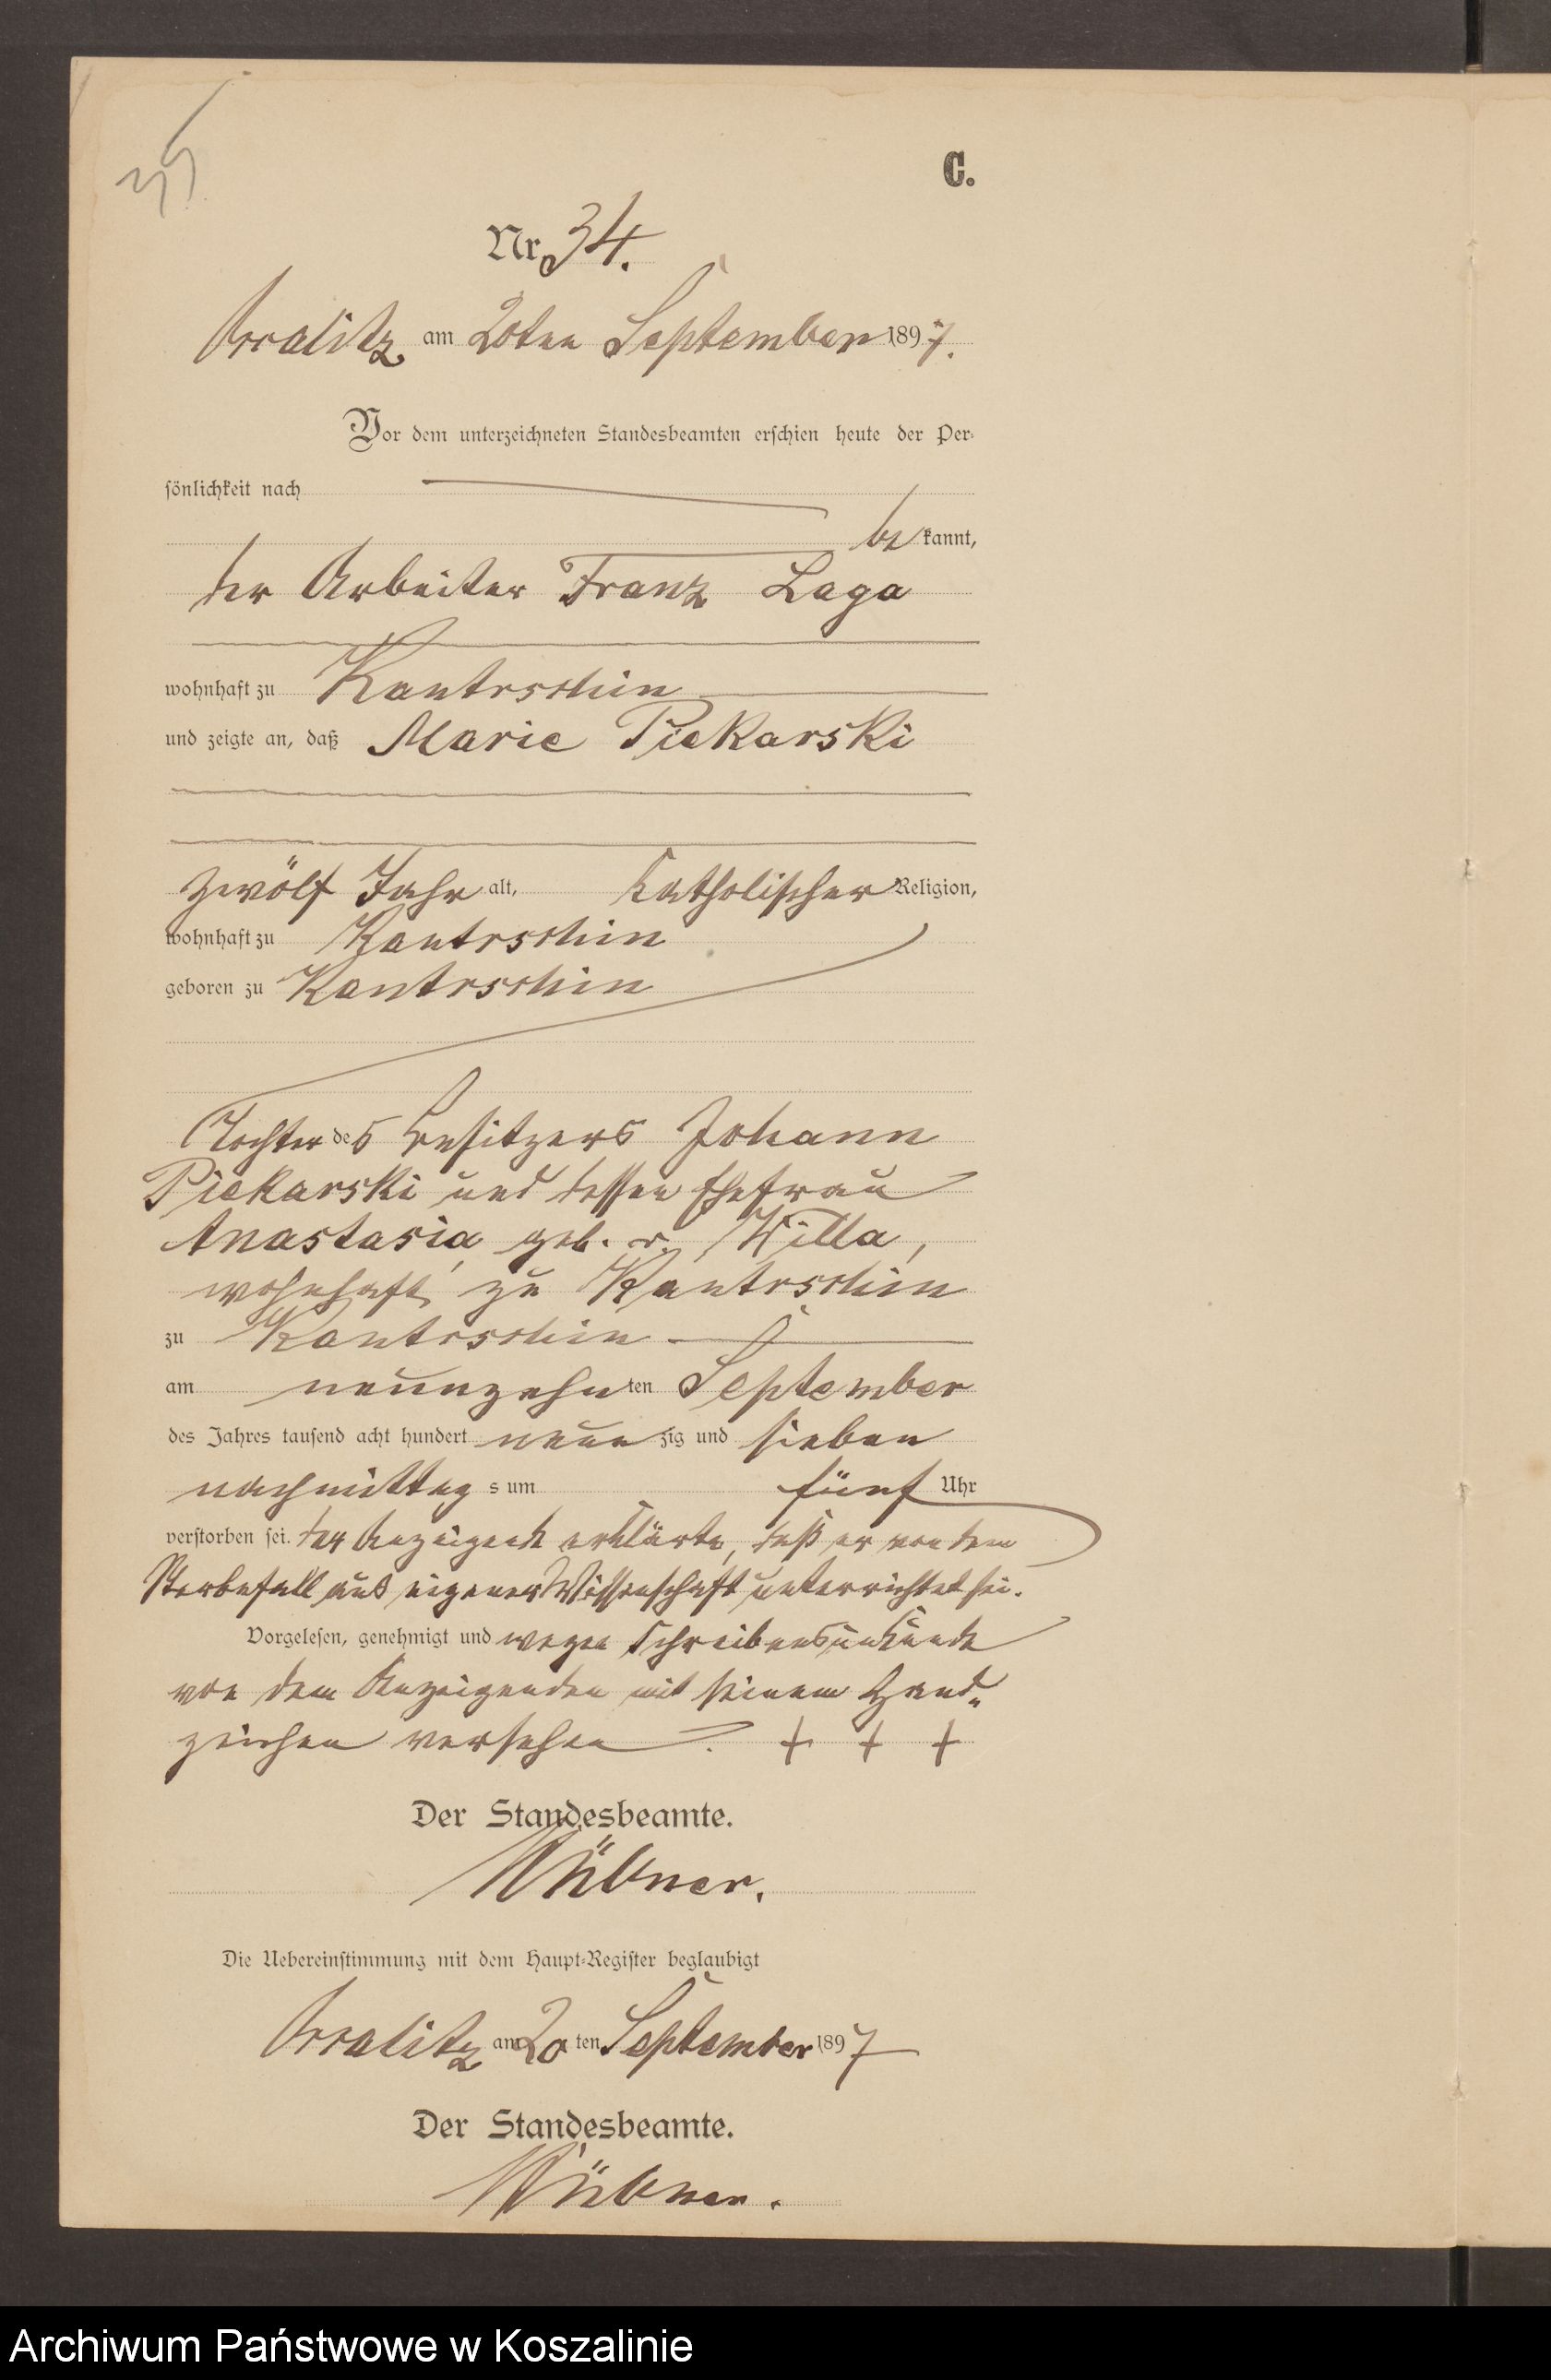 35.
C.
Nr. 34.
am 20ten September 1897.
Vor dem unterzeichneten Standesbeamten erschien heute der Per-
sönlichkeit nach
be kannt,
der Arbeiter Franz Laga
wohnhaft zu Kantrschin
und zeigte an, daß Marie Piekarski
zwölf Jahr alt, katholischer Religion,
wohnhaft zu Kantrschin
geboren zu Kantrschin
Tochter des Besitzers Johann
Piekarski und dessen Ehefrau
Anastasia geb. v. Willa,
wohnhaft zu Kantrschin
zu Kantrschin
am neunzehnten September
des Jahres tausend acht hundert neunzig und sieben
nachmittags um fünf Uhr
verstorben sei. Der Anzeigende erklärte, daß er von dem
Sterbefall aus eigener Wissenschaft unterrichtet sei.
Vorgelesen, genehmigt und wegen Schreibensunkunde
von dem Anzeigenden mit seinem Hand-
zeichen versehen. + + +
Der Standesbeamte.
Die Uebereinstimmung mit dem Haupt-Register beglaubigt
am 20ten September 1897
Der Standesbeamte.
Archiwum Państwowe w Koszalinie